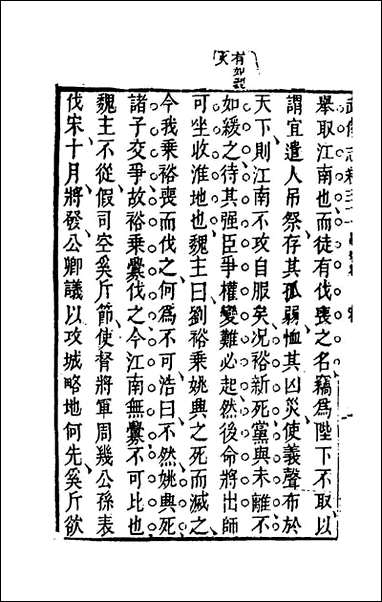 有如訳
矢
武備志卷三十
舉取江南也而徒有伐喪之名竊為陛下不取以
謂宜遣人吊祭存其孤弱恤其凶災使義聲布於
天下則江南不攻自服矣况裕新死黨與未離不
如緩之待其强臣爭權變難必起然後命將出師
可坐收淮地也魏主曰劉裕乘姚興之死而滅之
今我乘裕喪而伐之何為不可浩曰不然姚興死
諸子交爭故裕乘釁伐之今江南無釁不可比也
魏主不從假司空奚斤節使督將軍周幾公孫表
伐宋十月將發公卿議以攻城略地何先奚斤欲